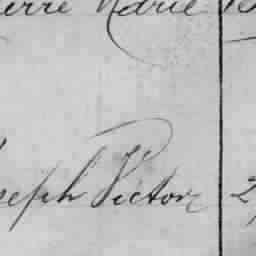 ierre Marie
seph Victor 2